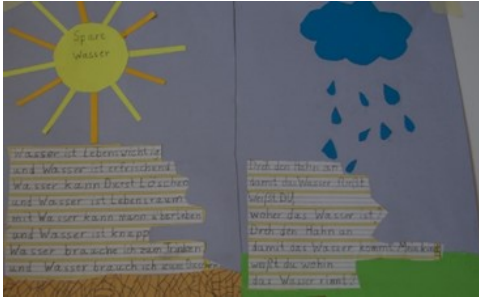 Spare
Wasser
Wasser ist Lebenswichtig
und Wasser ist erfrischend
Wasser kann Durst Löschen
und Wasser ist Lebensraum
mit Wasser kann mann überleben
und Wasser ist knapp
Wasser brauche ich zum Trinken
und Wasser brauch ich zum
Dreh den Hahn an
damit das Wasser fließt
weißt DU,
woher das Wasser ist
Dreh den Hahn an
damit das Wasser kommt
weißt du wohin
das Wasser rinnt?